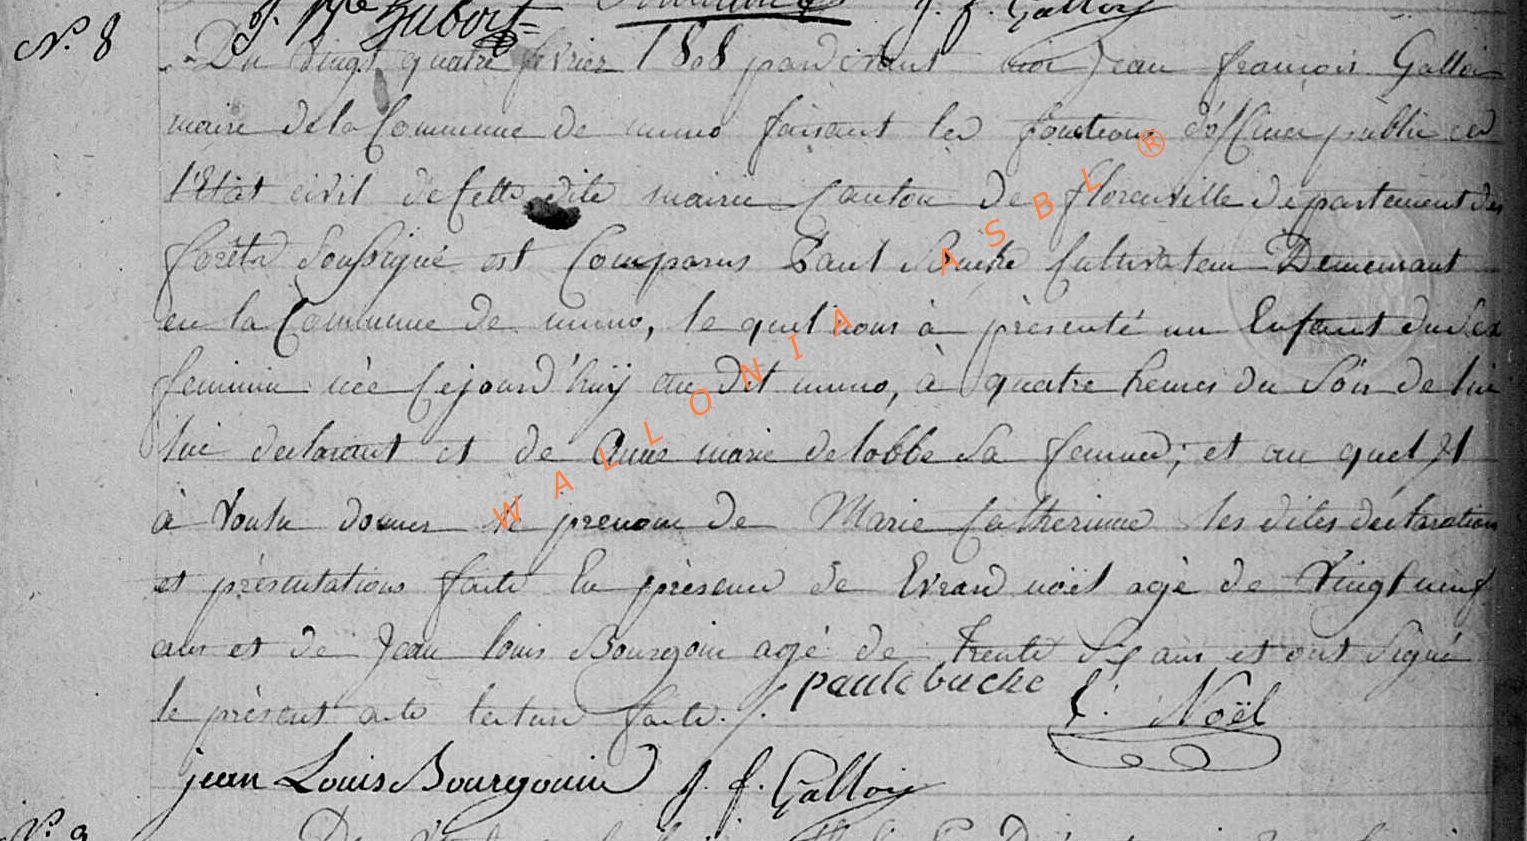 J. f. Gallois
N.° 8
Du vingt quatre fevrier 1808 pardevant moi Jean françois Gallois
maire de la Commune de muno faisant les fonctions d'officier public de
l'Etat civil de Cette dite mairie Canton de florenville departement des
forêts Soussigné est Comparus Paul Buche Cultivateur Demeurant
en la Commune de muno, le quel nous à présenté un Enfant du Sex
feminin née Cejourd'huÿ au dit muno, à quatre heures du Soir de lui
lui declarant et de Anne marie delobbe Sa femme; et au quel Il
à Voulu donner le prenom de Marie Catherinne les dites declaration
et présentations faite En présence de Evrard noël agé de Vingt neuf
ans et de Jean louis Bourgoin agé de trente Six ans et ont Signé
le présent acte lecture faite ./.
paule buche
E. Noël
jean Louis Bourgouin J. f. Gallois
N.° 9
WALLONIA ASBL ®